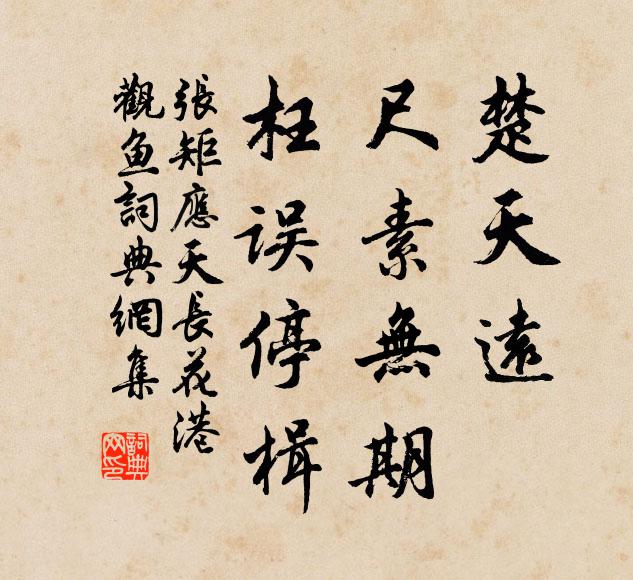 楚天遠
尺素無期
枉误停楫
張矩應天長花港
觀鱼詞典網集
詞典
网印